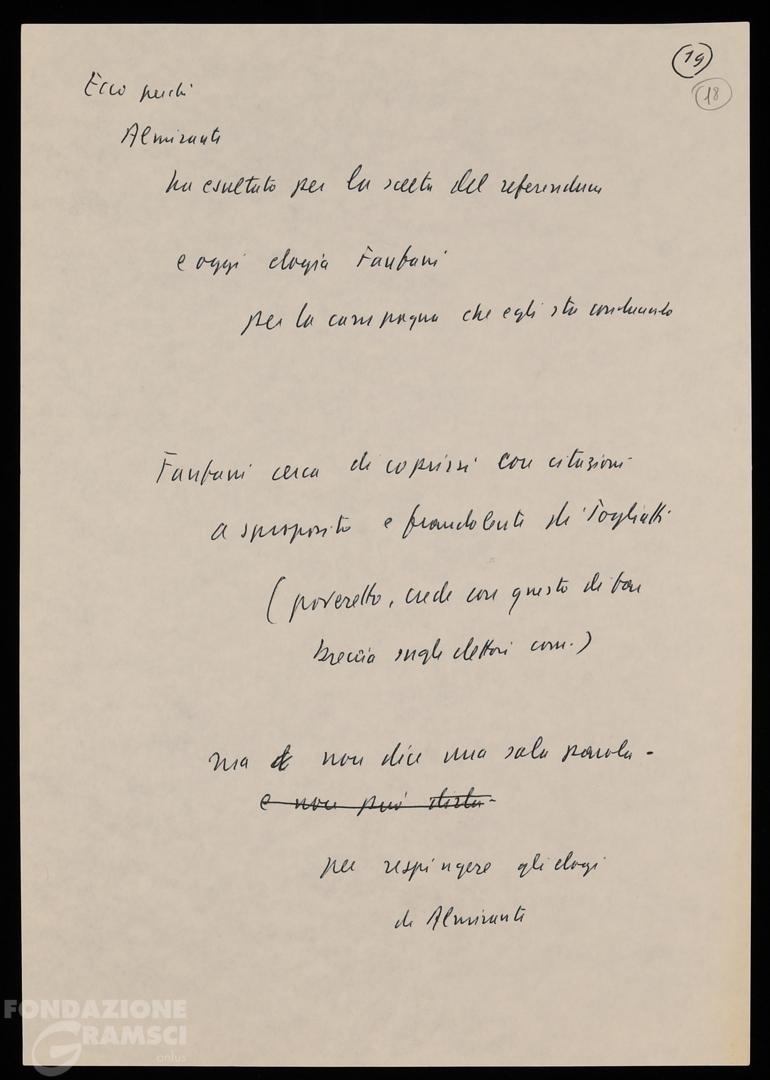 19
18
Ecco perché
Almirante
ha esultato per la scelta del referendum
e oggi elogia Fanfani
per la campagna che egli sta conducendo
Fanfani cerca di coprirsi con citazioni
a sproposito e fraudolente di Togliatti
(poveretto, crede con questo di far
breccia sugli elettori com.)
ma non dice una sola parola -
e non può dirla -
per respingere gli elogi
di Almirante
FONDAZIONE
GRAMSCI
onlus